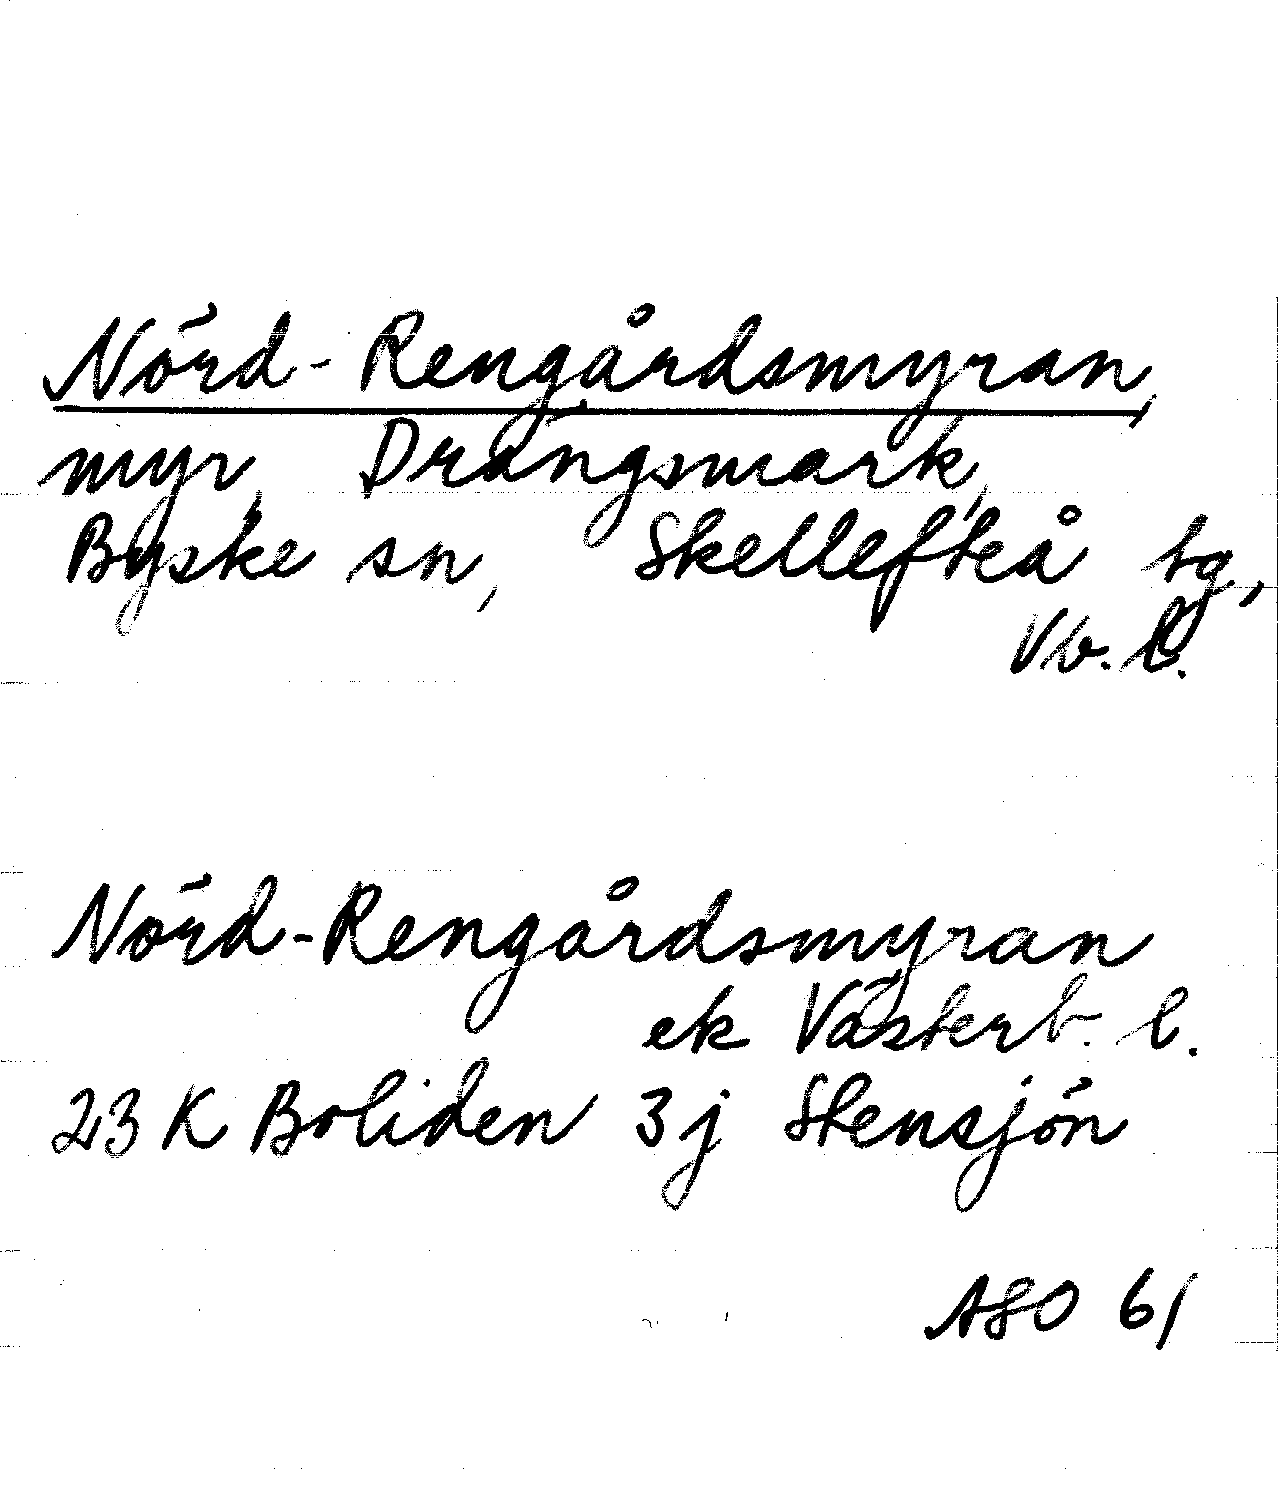 Nörd-Rengårdsmyran,
myr, Drängsmark,
Byske sn, Skellefteå tg,
Vb. l.
Nörd-Rengårdsmyran
ek Västerb. l.
23 K Boliden 3j Stensjön
ASO 61